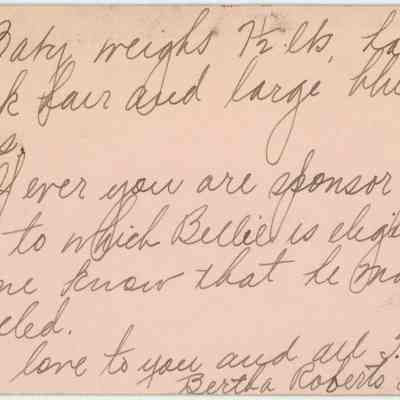 Baby weighs 7½ lbs, ha
k hair and large blu
s.
If ever you are sponsor
to which Billie is eligi
me know that he ma
eled.
love to you and all
Bertha Roberts